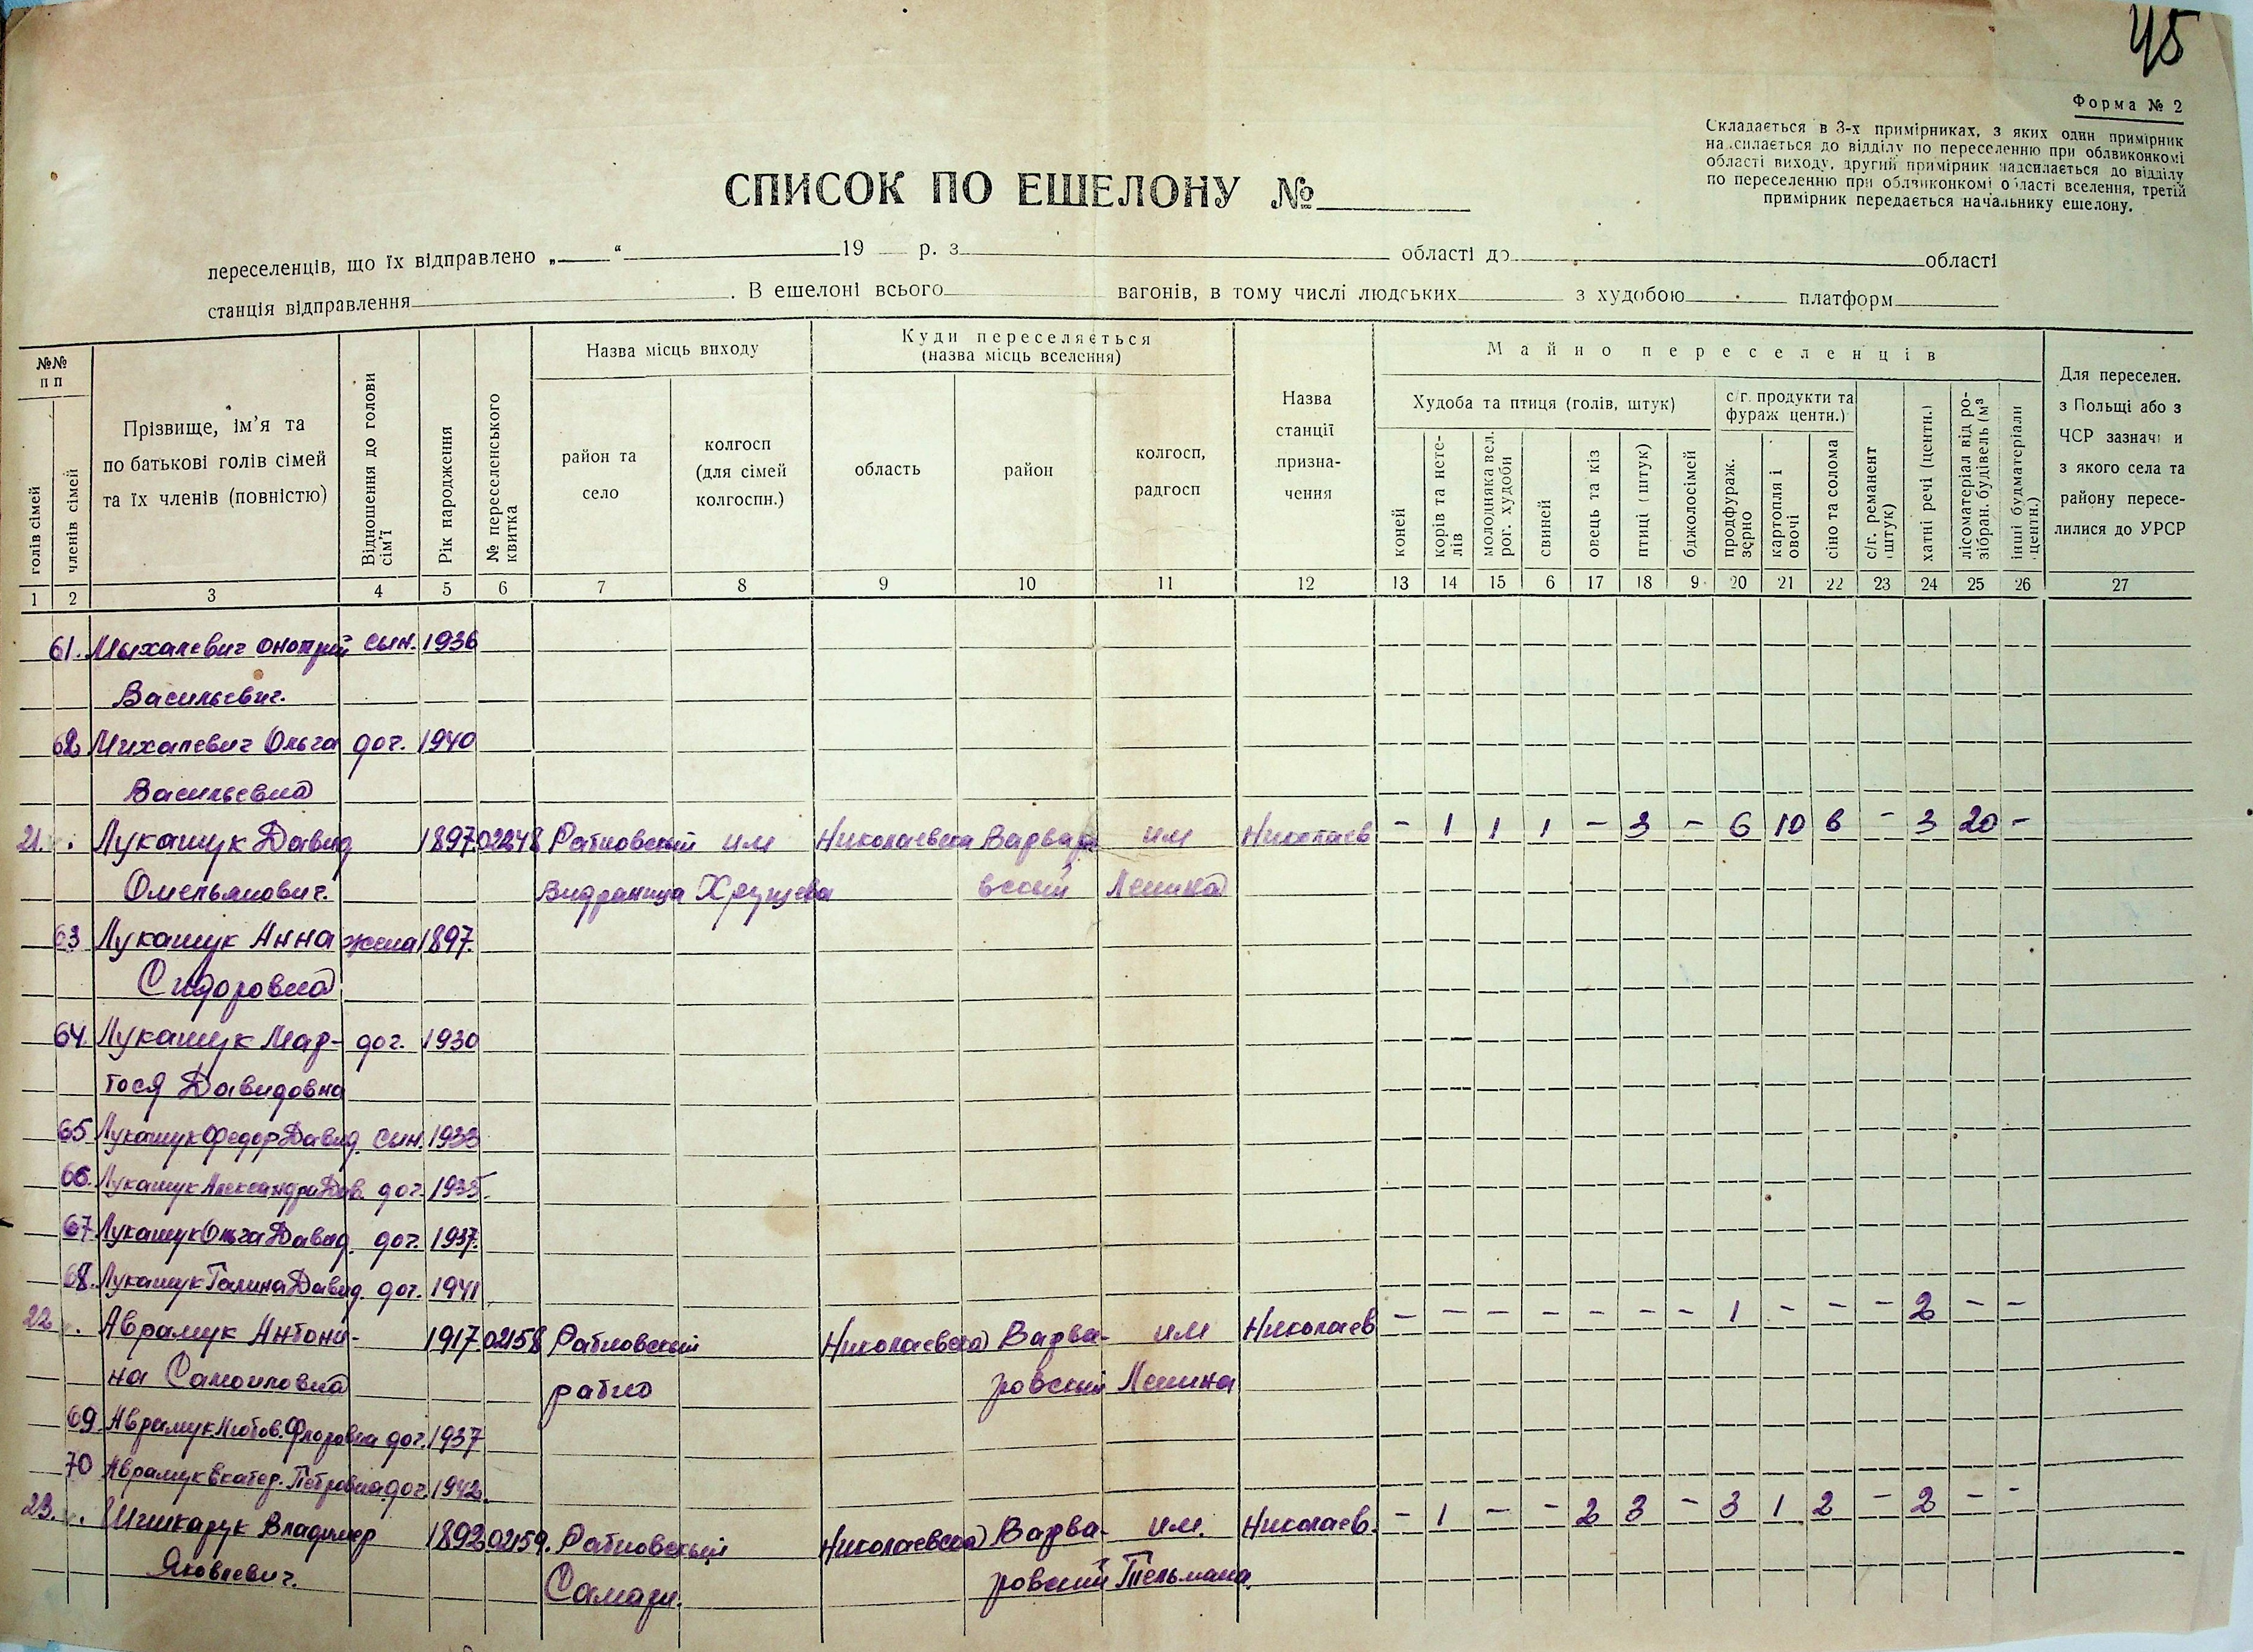 45
Форма № 2
Складається в 3-х примірниках, з яких один примірник
надсилається до відділу по переселенню при облвиконкомі
області виходу, другий примірник надсилається до відділу
по переселенню при облвиконкомі області вселення, третій
примірник передається начальнику ешелону.
СПИСОК ПО ЕШЕЛОНУ №
переселенців, що їх відправлено „ “ 19 р. з області до області
станція відправлення . В ешелоні всього вагонів, в тому числі людських з худобою платформ
№№ п п
голів сімей
членів сімей
Прізвище, ім’я та
по батькові голів сімей
та їх членів (повністю)
Відношення до голови
сім’ї
Рік народження
№ переселенського
квитка
Назва місць виходу
район та
село
колгосп
(для сімей
колгоспн.)
Куди переселяється
(назва місць вселення)
область
район
колгосп,
радгосп
Назва
станції
призна-
чення
Майно переселенців
Худоба та птиця (голів, штук)
коней
корів та нете-
лів
молодняка вел.
рог. худоби
свиней
овець та кіз
птиці (штук)
бджолосімей
с/г. продукти та
фураж центн.)
продфураж.
зерно
картопля і
овочі
сіно та солома
с/г. реманент
(штук)
хатні речі (центн.)
лісоматеріал від ро-
зібран. будівель (м³
інші будматеріали
(центн.)
Для переселен.
з Польщі або з
ЧСР зазначи и
з якого села та
району пересе-
лилися до УРСР
1 2 3 4 5 6 7 8 9 10 11 12 13 14 15 6 17 18 9 20 21 22 23 24 25 26 27
61. Мыхалевич Оноприй сын. 1936
Васильевич.
62 Михалевич Ольга доч. 1940
Васильевна
21. Лукашук Давид 1897 02248 Ратновский им Николаевска Варваро им Николаев - 1 1 1 - 3 - 6 10 6 - 3 20 -
Омельянович. Видраница Хрущева вский Ленина
63 Лукашук Анна жена 1897.
Сидоровна
64. Лукашук Мар- доч. 1930
тося Давидовна
65 Лукашук Федор Давид. сын. 1933
66. Лукашук Александра Дав. доч. 1935.
67 Лукашук Ольга Давид. доч. 1937.
68. Лукашук Галина Давид. доч. 1941
22 Аврамук Антони- 1917. 02158 Ратновский Николаевска Варва- им Николаев - - - - - - - 1 - - - 2 - -
на Самоиловна ратно ровский Ленина
69. Аврамук Любов. Флоровна доч. 1937
70 Аврамук Екатер. Петровна доч. 1942.
23. Шишкарук Владимер 1892 02159. Ратновский Николаевска Варва- им. Николаев. - 1 - - 2 3 - 3 1 2 - 2 - -
Яковлевич. Самари. ровский Тельмана.